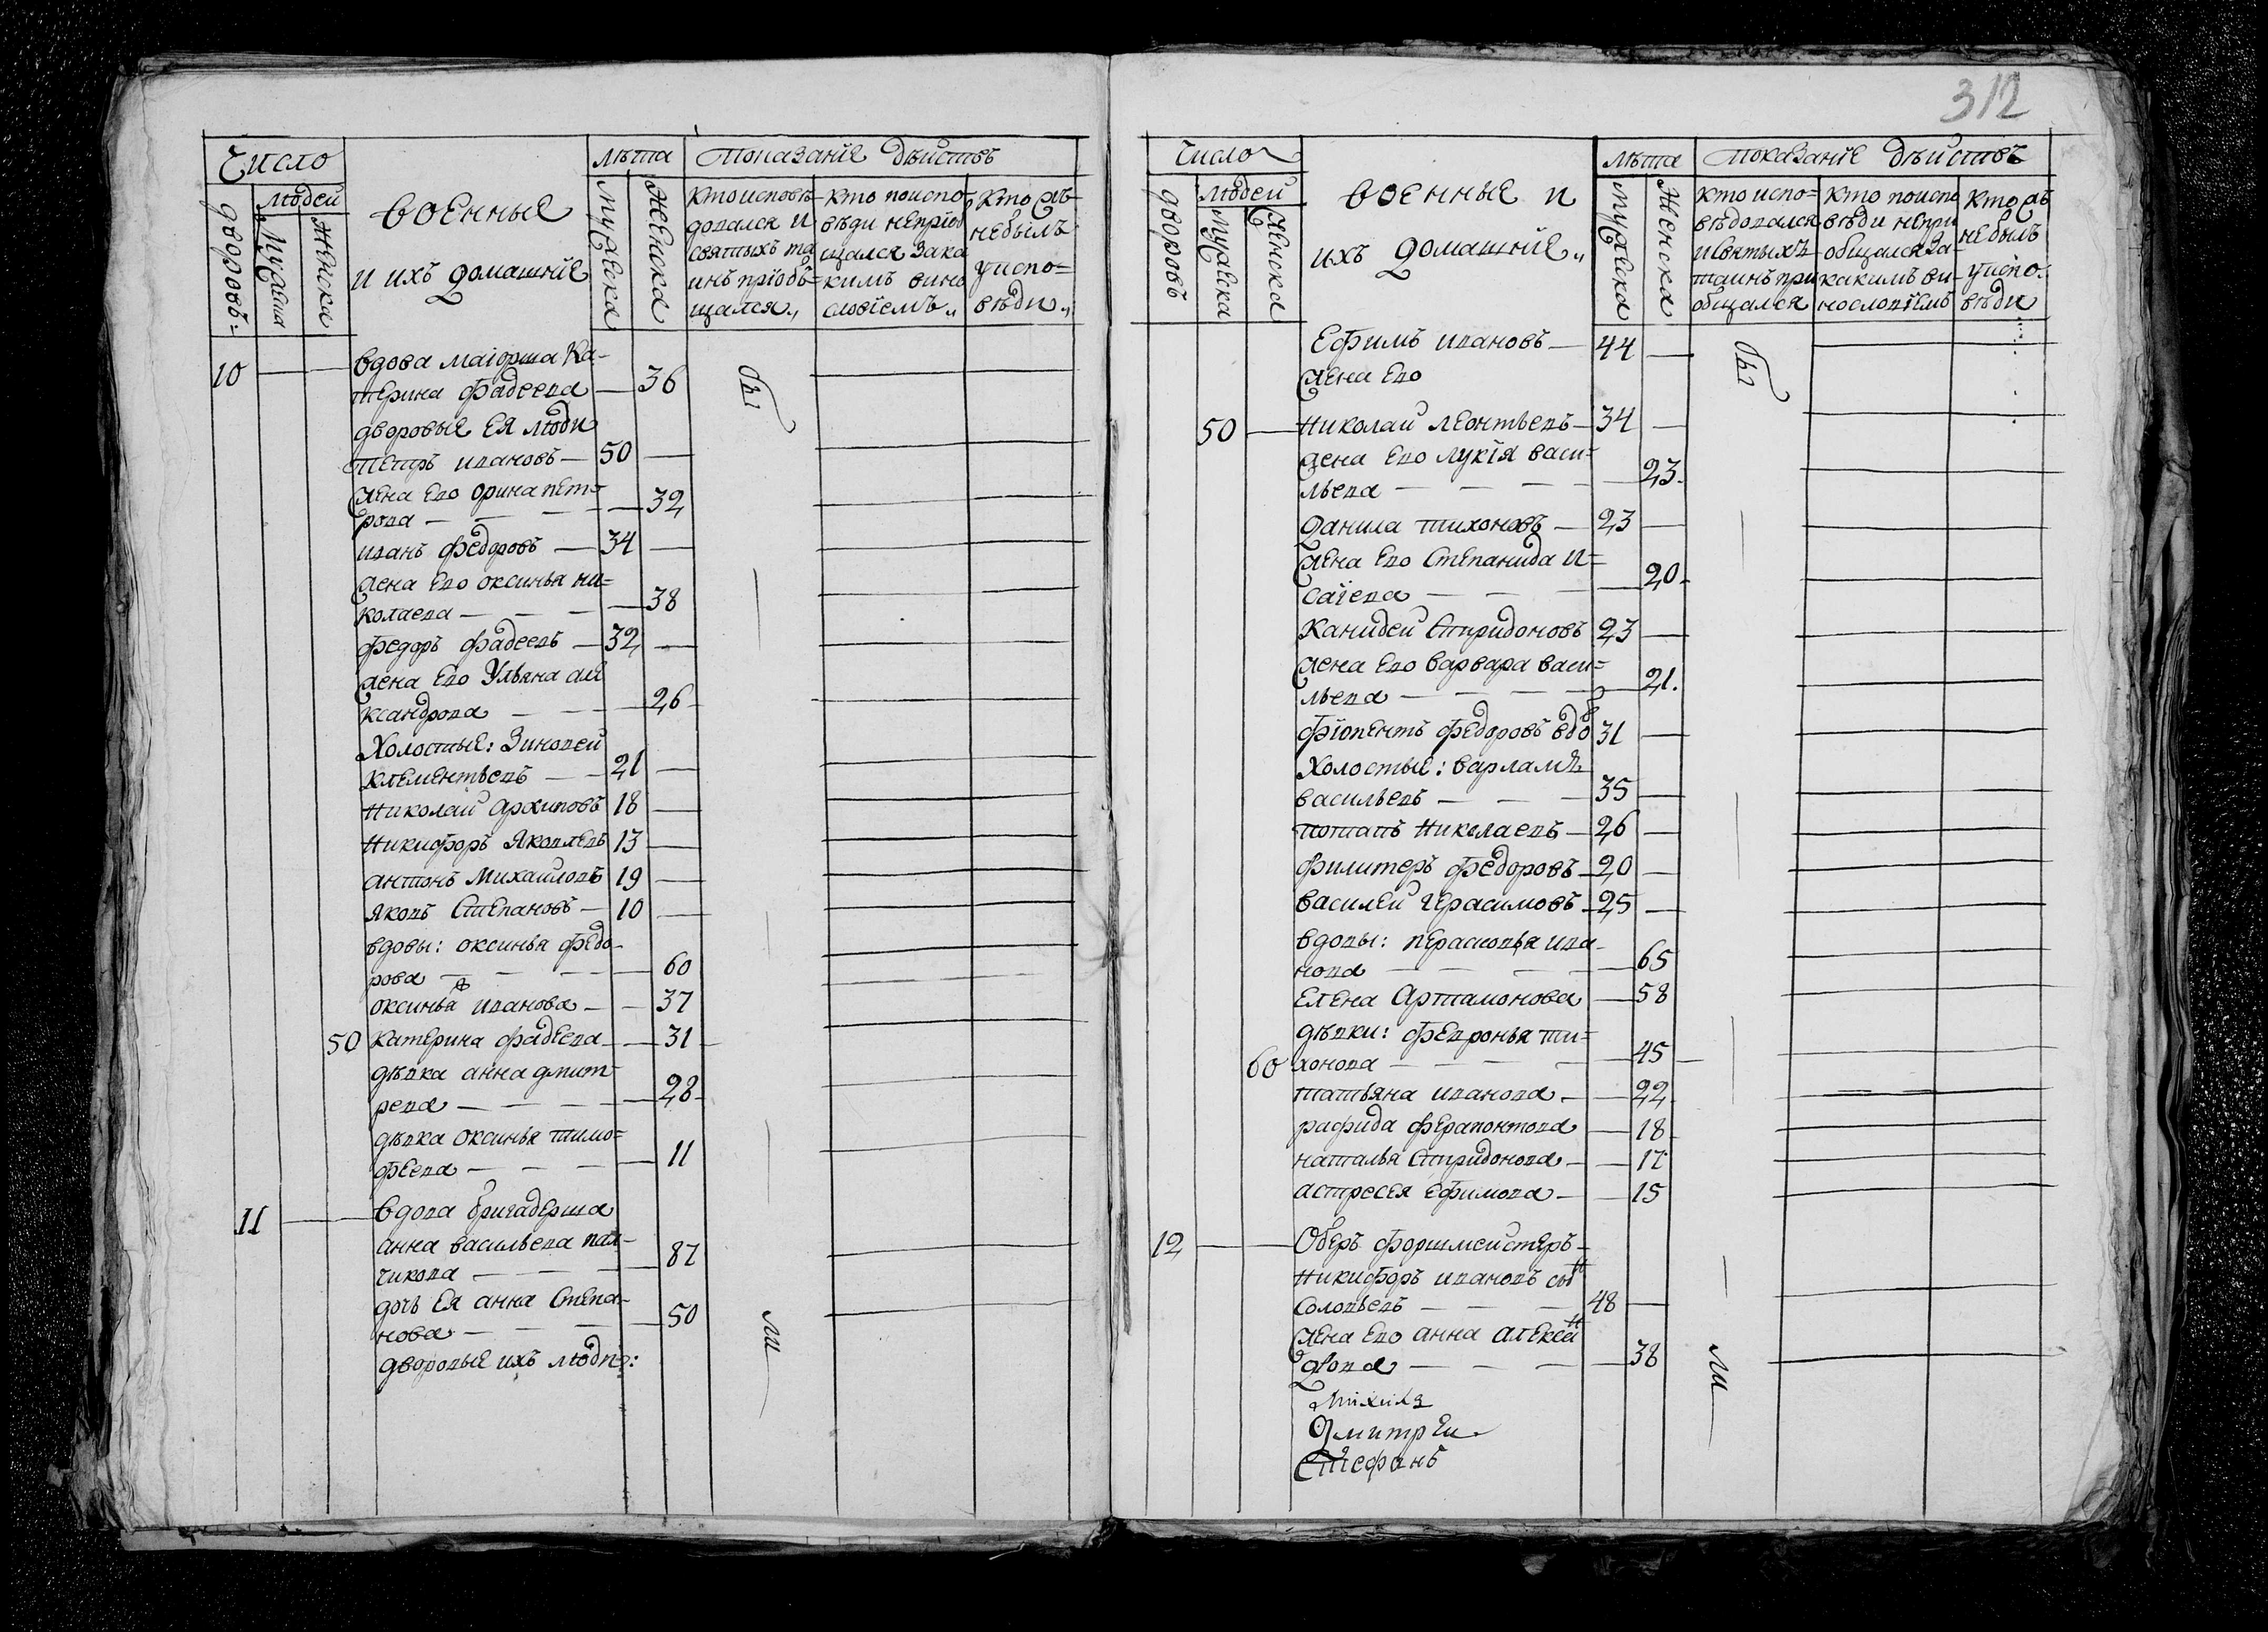 Число
людей
дворовъ
Мужеска
Женска
военные
и ихъ домашнïе
лѣта
мужеска
женска
показанïе дѣйствъ
кто исповѣ-
довался и
святыхъ та
инъ прïобѣ-
щался„
кто поиспо-
вѣди непрïоб
щался зака
кимъ вино
словïемъ„
кто жъ
небылъ
уиспо=
вѣди„
10
вдова маïорша Ка-
терина фадеева — 36
дворовые ея люди
петръ ивановъ — 50
жена ево орина пет=
рова — 32
иванъ федоровъ — 34
жена ево оксинья ни=
колаева — 38
федоръ фадеевъ — 32
жена ево Ульяна але
ксандрова — 26
Холостые: Зиновей
клементьевъ — 21
николай архиповъ 18
никифоръ Яковлевъ 13
антонъ Михайловъ 19
яковъ Степановъ — 10
вдовы: оксинья федо-
рова — 60
оксинья иванова — 37
50 катерина фадеева — 31
дѣвка анна дмит-
рева — 28
дѣвка оксинья тимо=
феева — 11
11
вдова бригадерша
анна васильева пал-
чикова — 87
дочь ея анна Степа-
нова — 50
дворовые ихъ люди:
бы
ли
312
Число
людей
дворовъ
мужеска
женска
военные и
ихъ домашнïе„
лѣта
мужеска
женска
показанïе дѣйствъ
кто испо=
вѣдовался
и святыхъ
таинъ при
общался
кто поиспо
вѣди непри
общался за-
какимъ ви-
нословïемъ
кто жъ
небылъ
уиспо:
вѣди
Ефимъ ивановъ — 44
жена ево
50 николай леонтьевъ — 34
жена ево лукïя васи=
льева — 23
данила тихоновъ — 23
жена ево Степанида и=
саïева — 20
Канидей Спиридоновъ 23
жена ево варвара васи=
льева — 21.
федоровъ вдо
в
31
Холостые: варламъ
васильевъ — 35
потапъ николаевъ — 26
филитеръ федоровъ — 20
василей герасимовъ — 25
вдовы: перасковья ива-
нова — 65
елена Артамонова — 58
дѣвки: февронья ти=
60 хонова — 45
татьяна иванова — 22
рафида ферапонтова — 18
наталья Спиридонова — 17
астресея ефимова — 15
12
Оберъ форшмейстеръ
никифоръ ивановъ сы
н
Соловьевъ — 48
жена ево анна алексѣ
дова — 38
Михила
Дмитреи
Стефанъ
бы
ли